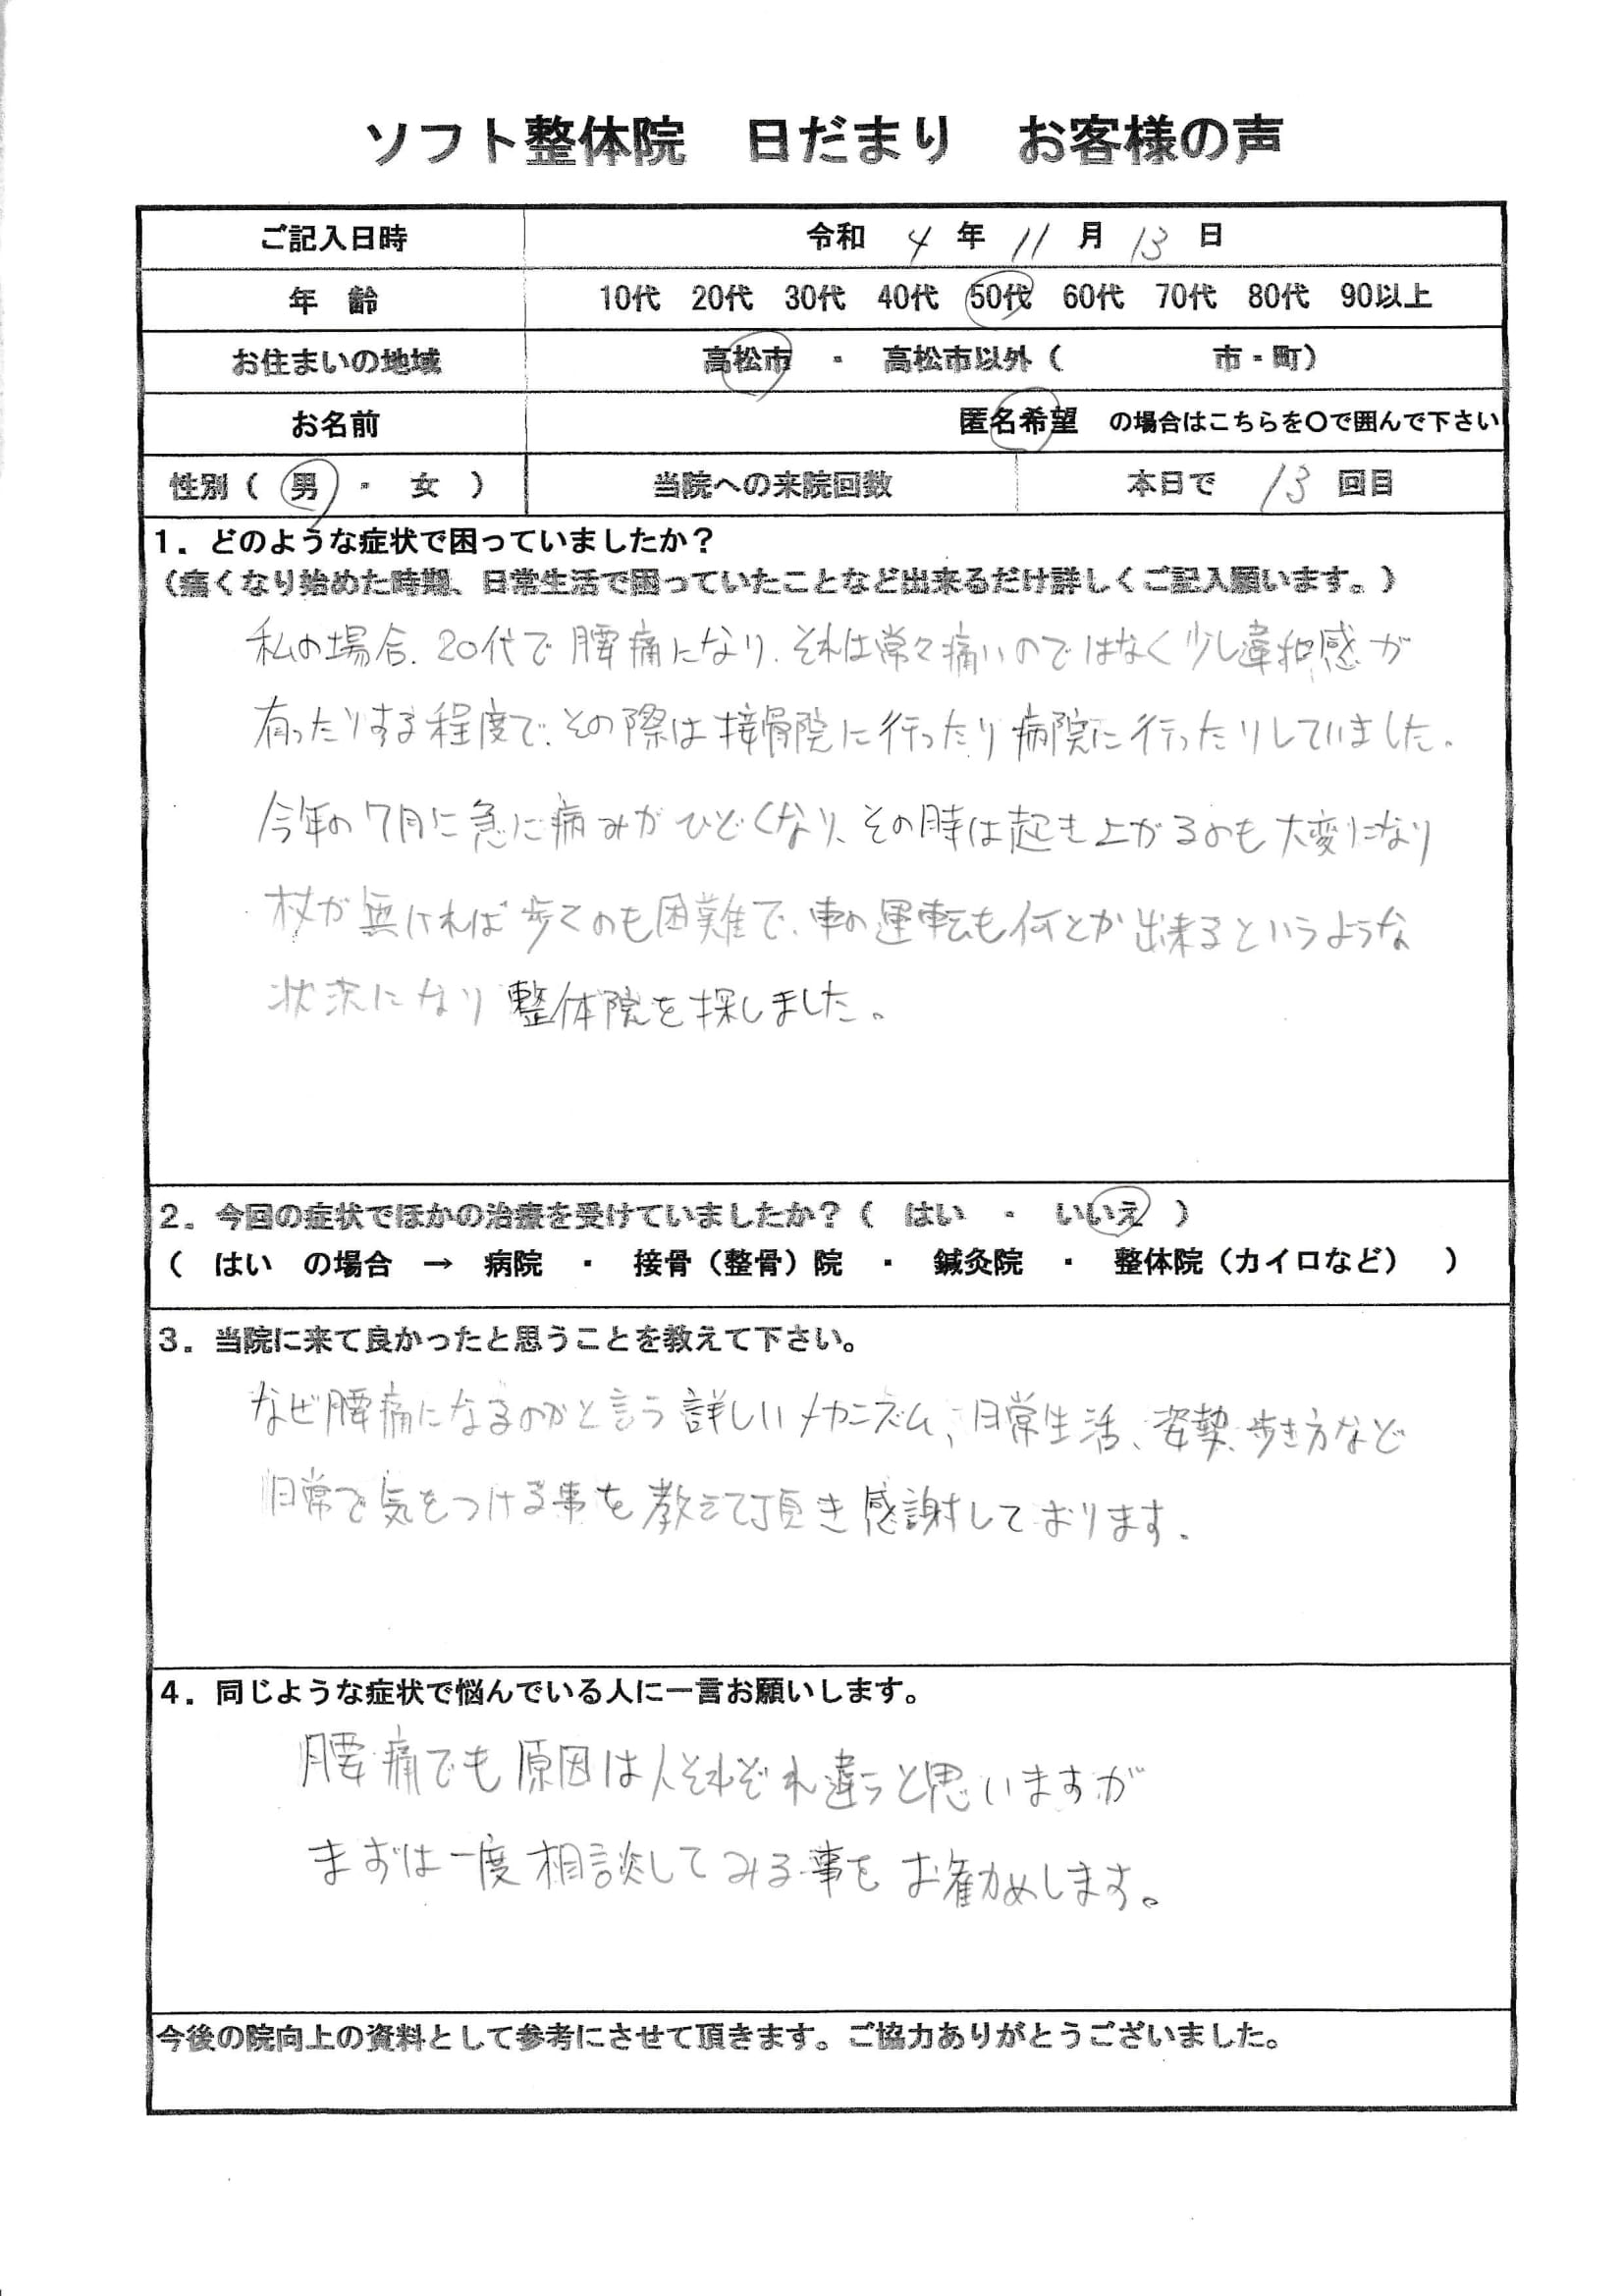 ソフト整体院　日だまり　お客様の声
ご記入日時　令和 4 年 11 月 13 日
年　齢　10代　20代　30代　40代　50代　60代　70代　80代　90以上
お住まいの地域　高松市　・　高松市以外（　　　　　市・町）
お名前　匿名希望　の場合はこちらを〇で囲んで下さい
性別（　男　・　女　）　当院への来院回数　本日で　13　回目
1．どのような症状で困っていましたか？
（痛くなり始めた時期、日常生活で困っていたことなど出来るだけ詳しくご記入願います。）
私の場合、20代で腰痛になり、それは常々痛いのではなく少し違和感が
有ったりする程度で、その際は接骨院に行ったり病院に行ったりしていました。
今年の7月に急に痛みがひどくなり、その時は起き上がるのも大変になり
杖が無ければ歩くのも困難で、車の運転も何とか出来るというような
状況になり整体院を探しました。
2．今回の症状でほかの治療を受けていましたか？（　はい　・　いいえ　）
（　はい　の場合　→　病院　・　接骨（整骨）院　・　鍼灸院　・　整体院（カイロなど）　）
3．当院に来て良かったと思うことを教えて下さい。
なぜ腰痛になるのかと言う詳しいメカニズム、日常生活、姿勢、歩き方など
日常で気をつける事を教えて頂き感謝しております。
4．同じような症状で悩んでいる人に一言お願いします。
腰痛でも原因は人それぞれ違うと思いますが
まずは一度相談してみる事をお勧めします。
今後の院向上の資料として参考にさせて頂きます。ご協力ありがとうございました。